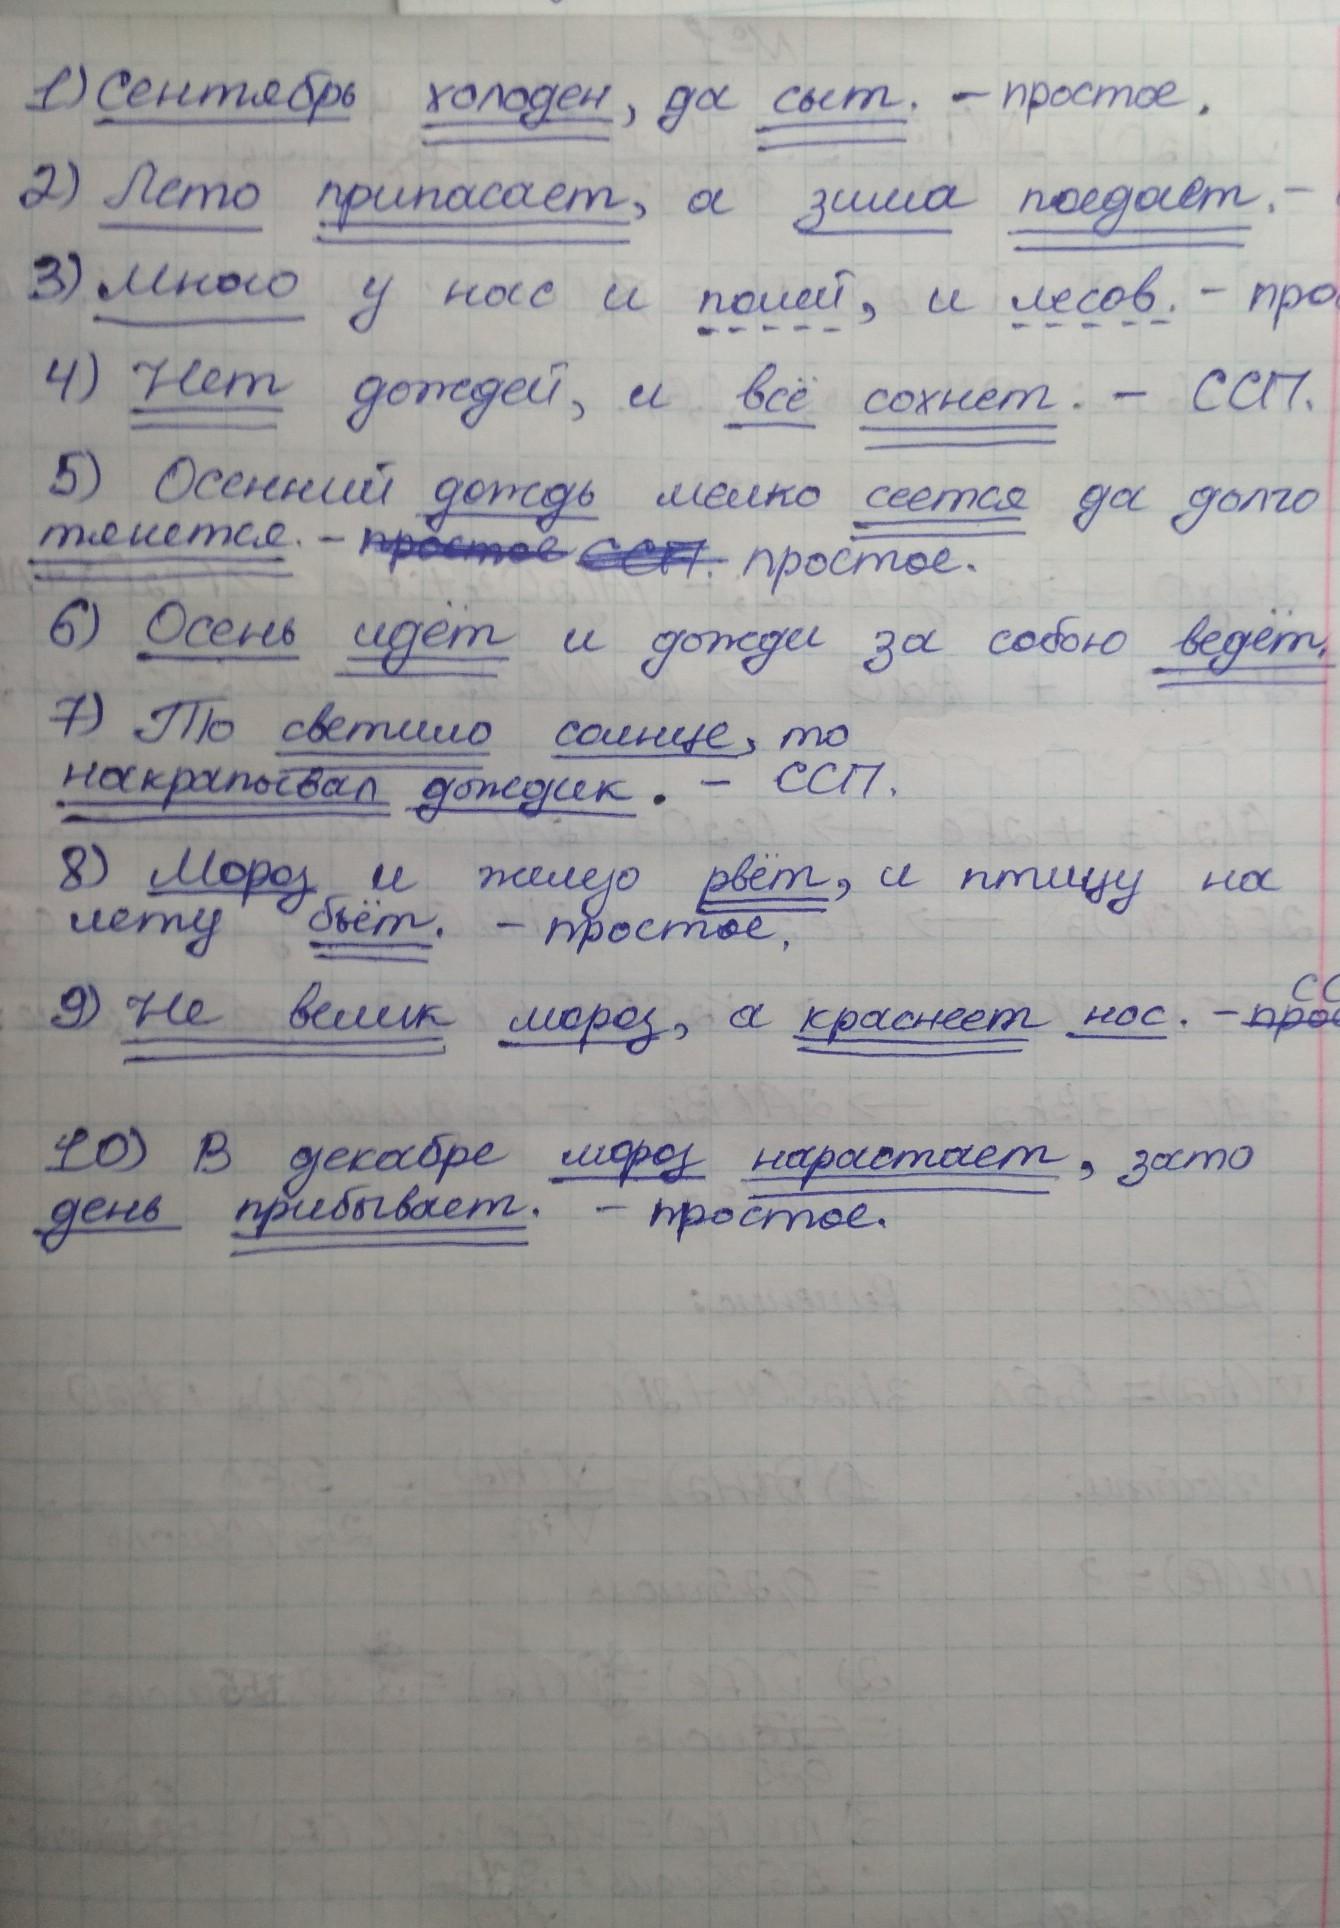 1) Сентябрь холоден, да сыт. - простое.
2) Лето припасает, а зима поедает. -
3) Много у нас и полей, и лесов. - про
4) Нет дождей, и всё сохнет. - ССП.
5) Осенний дождь мелко сеется да долго
тянется. - простое ССП. простое.
6) Осень идёт и дожди за собою ведёт.
7) То светило солнце, то
накрапывал дождик. - ССП.
8) Мороз и железо рвёт, и птицу на
лету бьёт. - простое.
СС
9) Не велик мороз, а краснеет нос. - прос
10) В декабре мороз нарастает, зато
день прибывает. - простое.